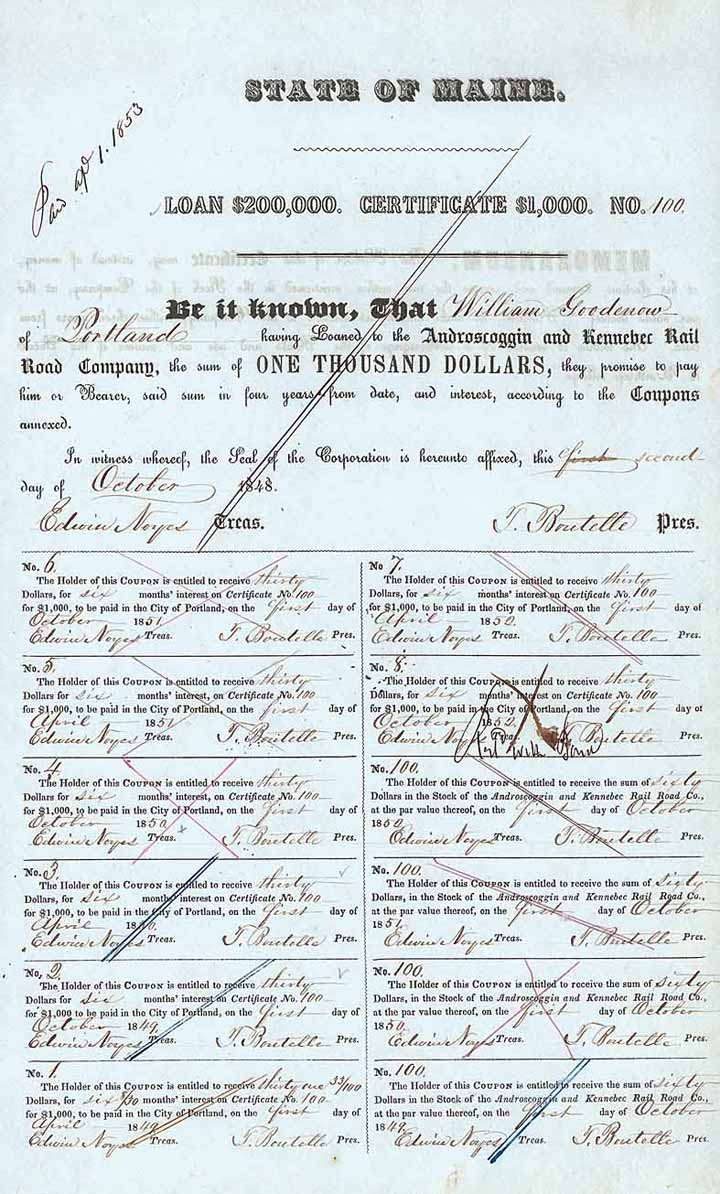 STATE OF MAINE.
Paid 1. 1853
LOAN $200,000. CERTIFICATE $1,000. NO. 100.
Be it known, That William Goodenow
of Portland having Loaned to the Androscoggin and Kennebec Rail
Road Company, the sum of ONE THOUSAND DOLLARS, they promise to pay
him or Bearer, said sum in four years from date, and interest, according to the Coupons
annexed.
In witness whereof, the Seal of the Corporation is hereunto affixed, this first second
day of October 1848.
Edwin Noyes Treas. T. Boutelle Pres.
No. 6.
The Holder of this COUPON is entitled to receive thirty
Dollars, for six months' interest on Certificate No. 100
for $1,000, to be paid in the City of Portland, on the first day of
October 1851.
Edwin Noyes Treas. T. Boutelle Pres.
No. 5.
The Holder of this COUPON is entitled to receive thirty
Dollars for six months' interest, on Certificate No. 100
for $1,000, to be paid in the City of Portland, on the first day of
April 1851
Edwin Noyes Treas. T. Boutelle Pres.
No. 4.
The Holder of this COUPON is entitled to receive thirty
Dollars, for six months' interest, on Certificate No. 100
for $1,000, to be paid in the City of Portland, on the first day of
October 1850
Edwin Noyes Treas. T. Boutelle Pres.
No. 3.
The Holder of this COUPON is entitled to receive thirty
Dollars, for six months' interest on Certificate No. 100
for $1,000, to be paid in the City of Portland, on the first day of
April 1850.
Edwin Noyes Treas. T. Boutelle Pres.
No. 2.
The Holder of this COUPON is entitled to receive thirty
Dollars for six months' interest on Certificate No. 100
for $1,000 to be paid in the City of Portland, on the first day of
October 1849.
Edwin Noyes Treas. T. Boutelle Pres.
No. 1.
The Holder of this COUPON is entitled to receive thirty one 33/100
Dollars, for six months' interest on Certificate No. 100
for $1,000, to be paid in the City of Portland, on the first day of
April 1849
Edwin Noyes Treas. T. Boutelle Pres.
No. 7.
The Holder of this COUPON is entitled to receive thirty
Dollars, for six months' interest on Certificate No. 100
for $1,000, to be paid in the City of Portland, on the first day of
April 1852.
Edwin Noyes Treas. T. Boutelle Pres.
No. 8.
The Holder of this COUPON is entitled to receive thirty
Dollars, for six months' interest on Certificate No. 100
for $1,000, to be paid in the City of Portland, on the first day of
October 1852.
Edwin Noyes Treas. T. Boutelle Pres.
with
No. 100.
The Holder of this COUPON is entitled to receive the sum of sixty
Dollars in the Stock of the Androscoggin and Kennebec Rail Road Co.,
at the par value thereof, on the first day of October
1852.
Edwin Noyes Treas. T. Boutelle Pres.
No. 100.
The Holder of this COUPON is entitled to receive the sum of sixty
Dollars, in the Stock of the Androscoggin and Kennebec Rail Road Co.,
at the par value thereof, on the first day of October
1851.
Edwin Noyes Treas. T. Boutelle Pres.
No. 100.
The Holder of this COUPON is entitled to receive the sum of sixty
Dollars, in the Stock of the Androscoggin and Kennebec Rail Road Co.,
at the par value thereof, on the first day of October
1850.
Edwin Noyes Treas. T. Boutelle Pres.
No. 100.
The Holder of this COUPON is entitled to receive the sum of sixty
Dollars, in the Stock of the Androscoggin and Kennebec Rail Road Co.,
at the par value thereof, on the first day of October
1849.
Edwin Noyes Treas. T. Boutelle Pres.